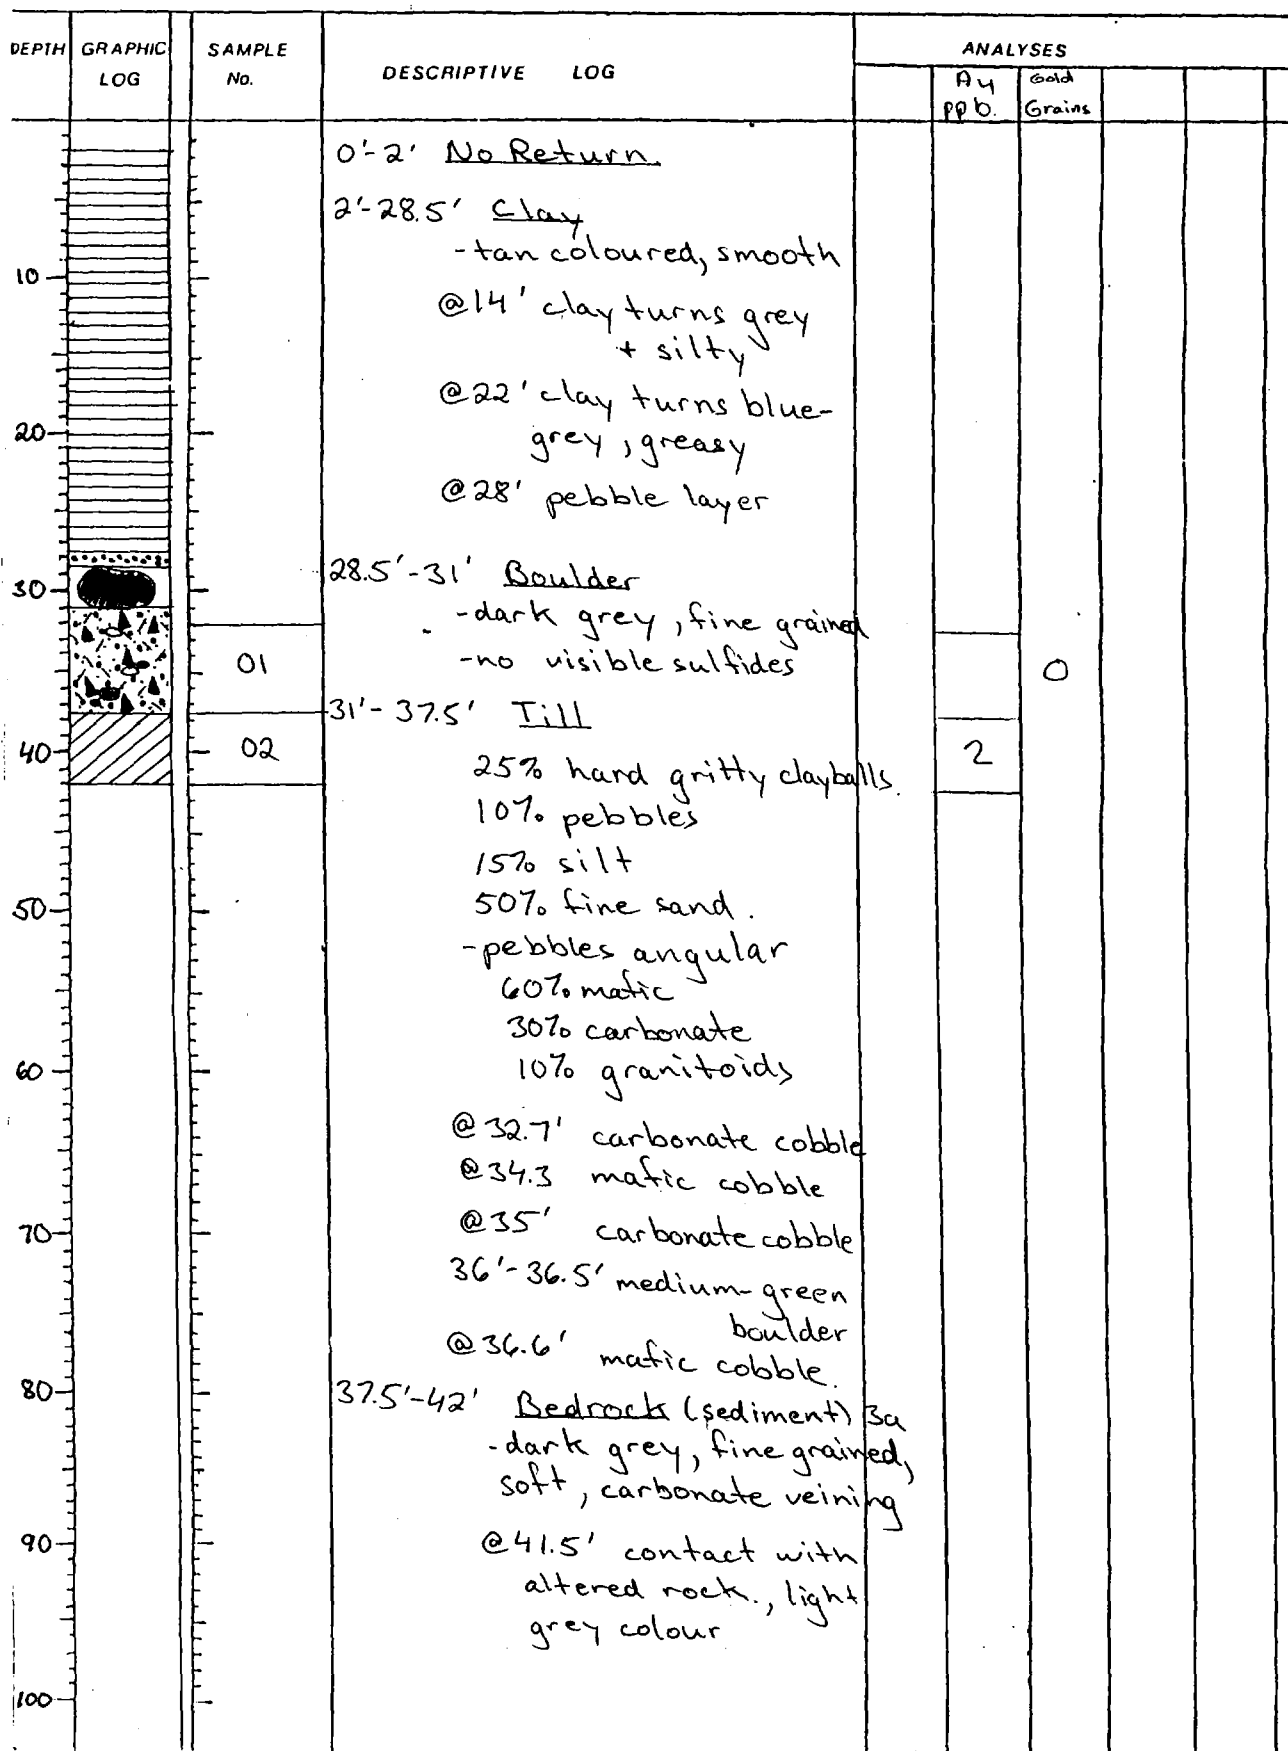 DEPTH GRAPHIC LOG SAMPLE No. DESCRIPTIVE LOG ANALYSES
Au ppb. Gold Grains
0'-2' No Return.
2'-28.5' Clay
-tan coloured, smooth
10
@14' clay turns grey
+ silty
@22' clay turns blue-
20
grey, greasy
@28' pebble layer
28.5'-31' Boulder
30
-dark grey, fine grained
-no visible sulfides
01 0
31'-37.5' Till
40 02 2
25% hard gritty clayballs.
10% pebbles
15% silt
50 50% fine sand.
-pebbles angular
60% mafic
30% carbonate
60 10% granitoids
@32.7' carbonate cobble
@34.3 mafic cobble
70 @35' carbonate cobble
36'-36.5' medium-green
boulder
@36.6' mafic cobble.
80 37.5'-42' Bedrock (sediment) 3a
-dark grey, fine grained,
soft, carbonate veining
90 @41.5' contact with
altered rock., light
grey colour
100